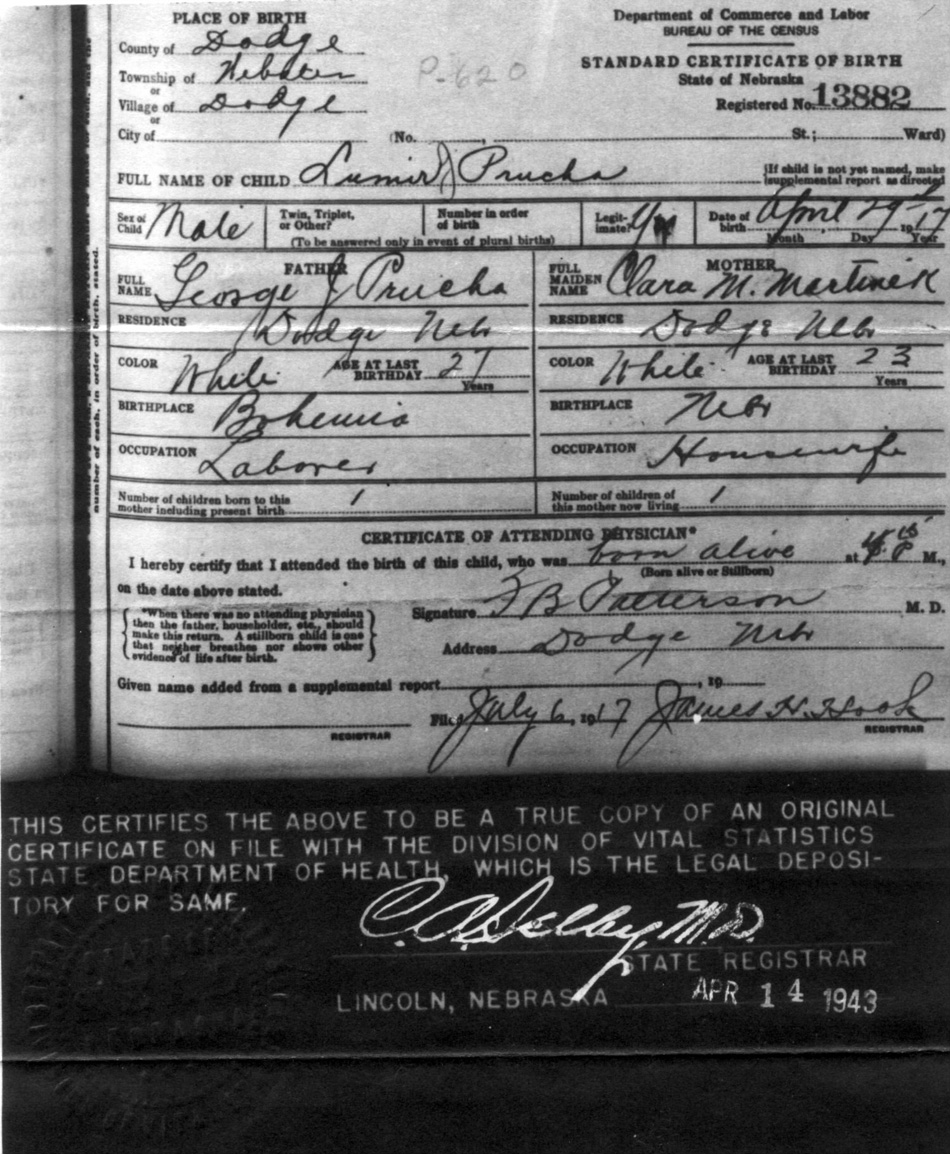 PLACE OF BIRTH
Department of Commerce and Labor
BUREAU OF THE CENSUS
County of Dodge
STANDARD CERTIFICATE OF BIRTH
Township of Webster
P-620
State of Nebraska
or
Village of Dodge
Registered No. 13882
or
City of (No. , St.; Ward)
FULL NAME OF CHILD Lumir J Prucha
{If child is not yet named, make
supplemental report as directed
Sex of Child Male
Twin, Triplet, or Other?
Number in order of birth
(To be answered only in event of plural births)
Legitimate?
Date of birth April 29, 1917
Month Day Year
FATHER
FULL NAME George J Prucha
MOTHER
FULL MAIDEN NAME Clara M. Martinek
RESIDENCE Dodge Nebr
RESIDENCE Dodge Nebr
COLOR White AGE AT LAST BIRTHDAY 27 Years
COLOR White AGE AT LAST BIRTHDAY 23 Years
BIRTHPLACE Bohemia
BIRTHPLACE Nebr
OCCUPATION Laborer
OCCUPATION Housewife
Number of children born to this mother including present birth 1
Number of children of this mother now living 1
CERTIFICATE OF ATTENDING PHYSICIAN*
I hereby certify that I attended the birth of this child, who was born alive at M.,
(Born alive or Stillborn)
on the date above stated.
*When there was no attending physician
then the father, householder, etc., should
make this return. A stillborn child is one
that neither breathes nor shows other
evidence of life after birth.
Signature F B Patterson M. D.
Address Dodge Nebr
Given name added from a supplemental report , 19
Filed July 6, 1917 James H. Hook
REGISTRAR
REGISTRAR
number of each, in order of birth, stated.
THIS CERTIFIES THE ABOVE TO BE A TRUE COPY OF AN ORIGINAL
CERTIFICATE ON FILE WITH THE DIVISION OF VITAL STATISTICS
STATE DEPARTMENT OF HEALTH, WHICH IS THE LEGAL DEPOSI-
TORY FOR SAME.
C. A. Selby, M.D.
STATE REGISTRAR
LINCOLN, NEBRASKA APR 14 1943